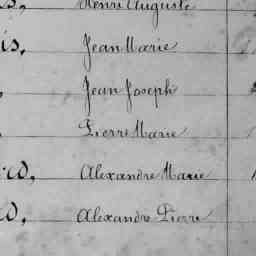 Henri Auguste
is, Jean Marie
Jean Joseph
Pierre Marie
d, Alexandre Marie
d, Alexandre Pierre